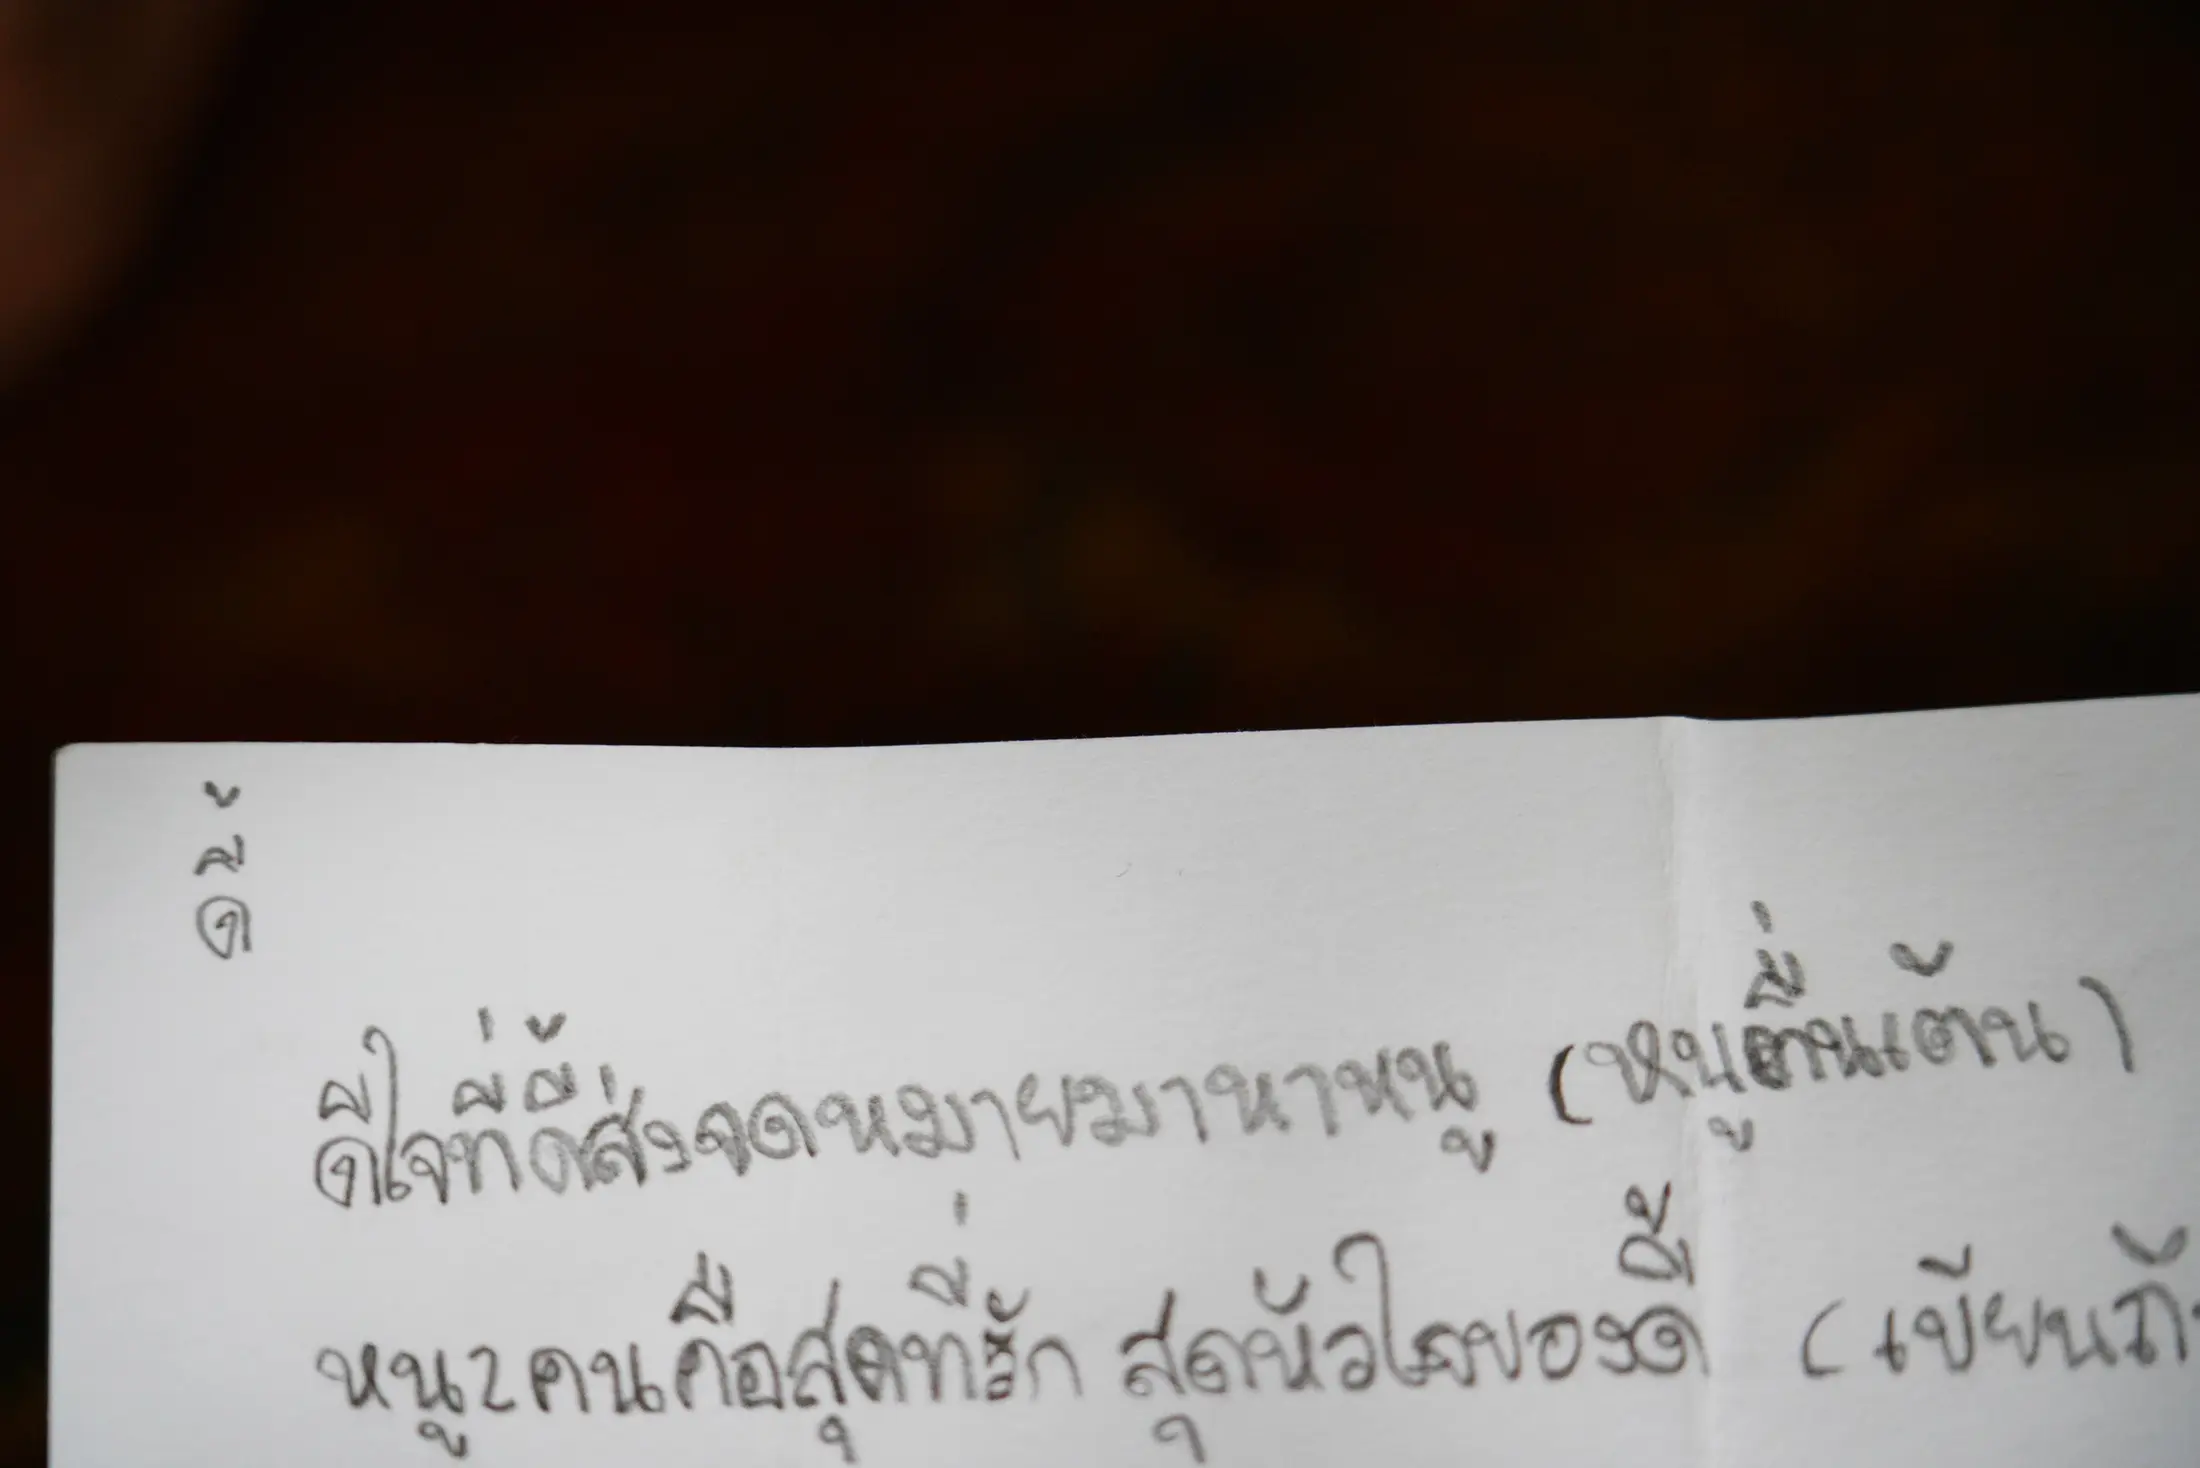 ดี้
ดีใจที่ดี้ส่งจดหมายมาหาหนู (หนูตื่นเต้น)
หนู2คนคือสุดที่รัก สุดหัวใจของดี้ (เขียน